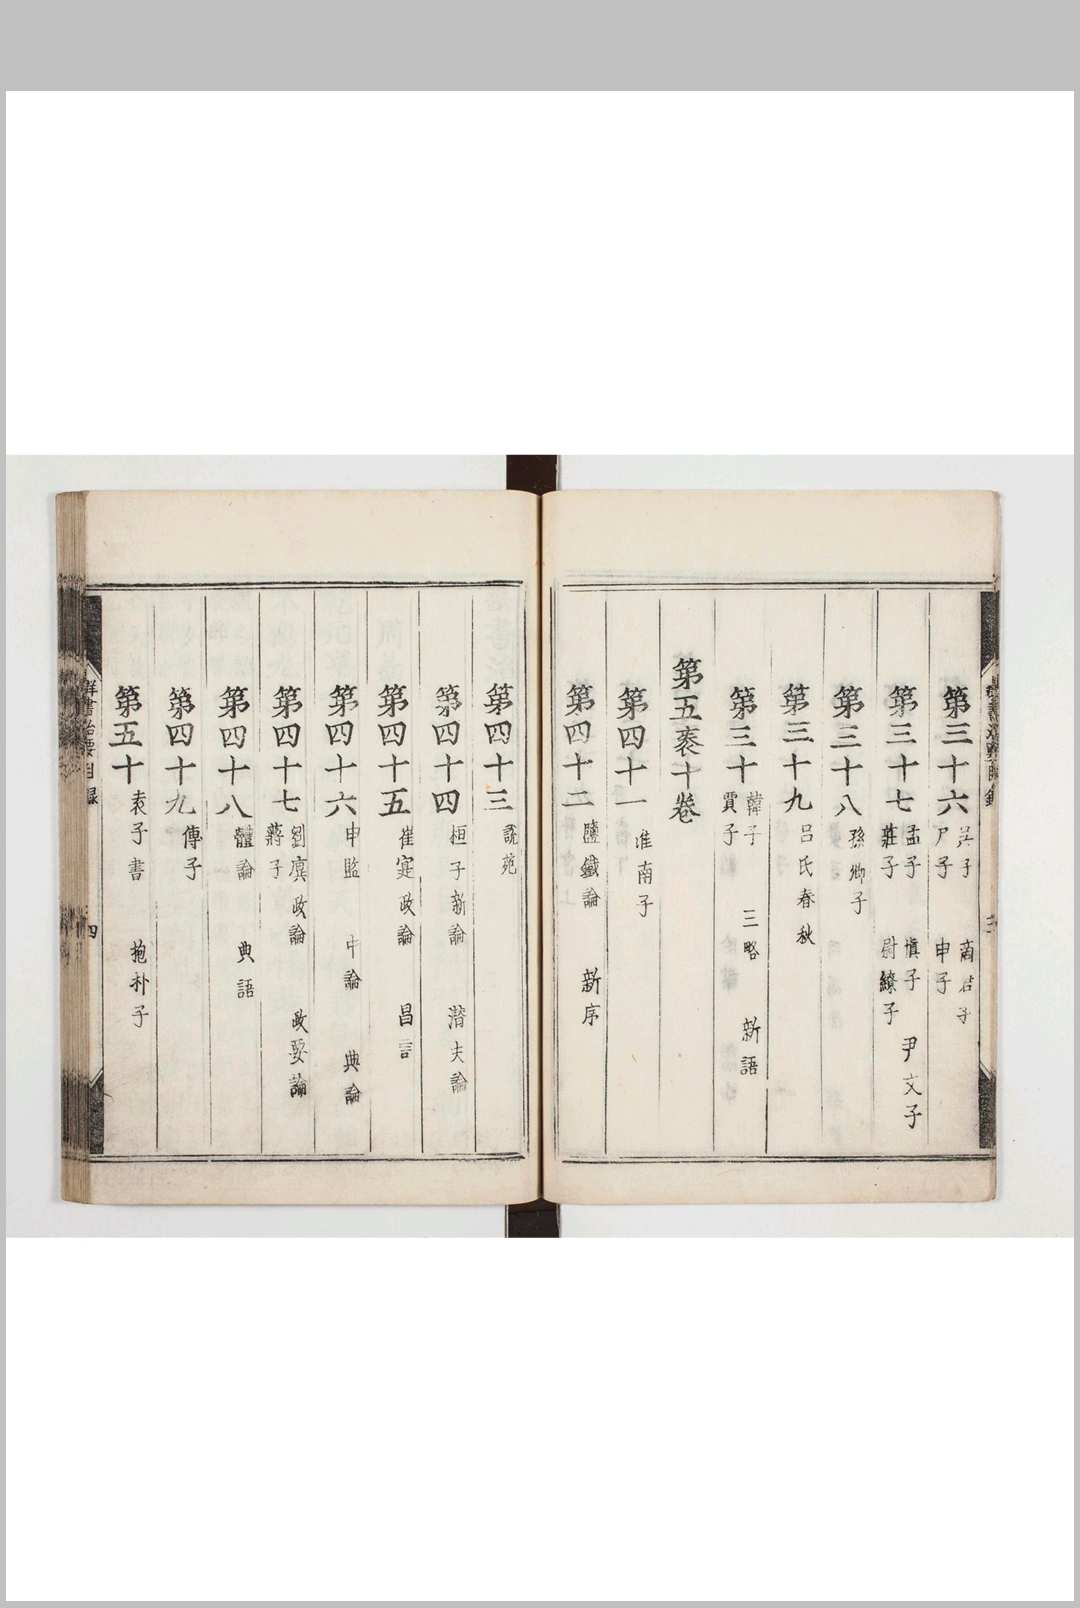 第三十六 吳子 商君子
尸子 申子
第三十七 孟子 愼子 尹文子
莊子 尉繚子
第三十八 孫卿子
第三十九 呂氏春秋
第三十 韓子 三略 新語
賈子
第五袠十卷
第四十一 淮南子
第四十二 鹽鐵論 新序
第四十三 說苑
第四十四 桓子新論 潛夫論
第四十五 崔寔政論 昌言
第四十六 申監 中論 典論
第四十七 劉廙政論 政要論
蔣子
第四十八 體論 典語
第四十九 傅子
第五十 袁子書 抱朴子
群書治要目錄 四